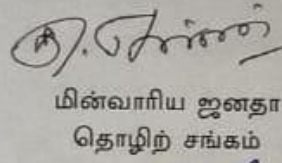 மின்வாரிய ஜனதா
தொழிற் சங்கம்